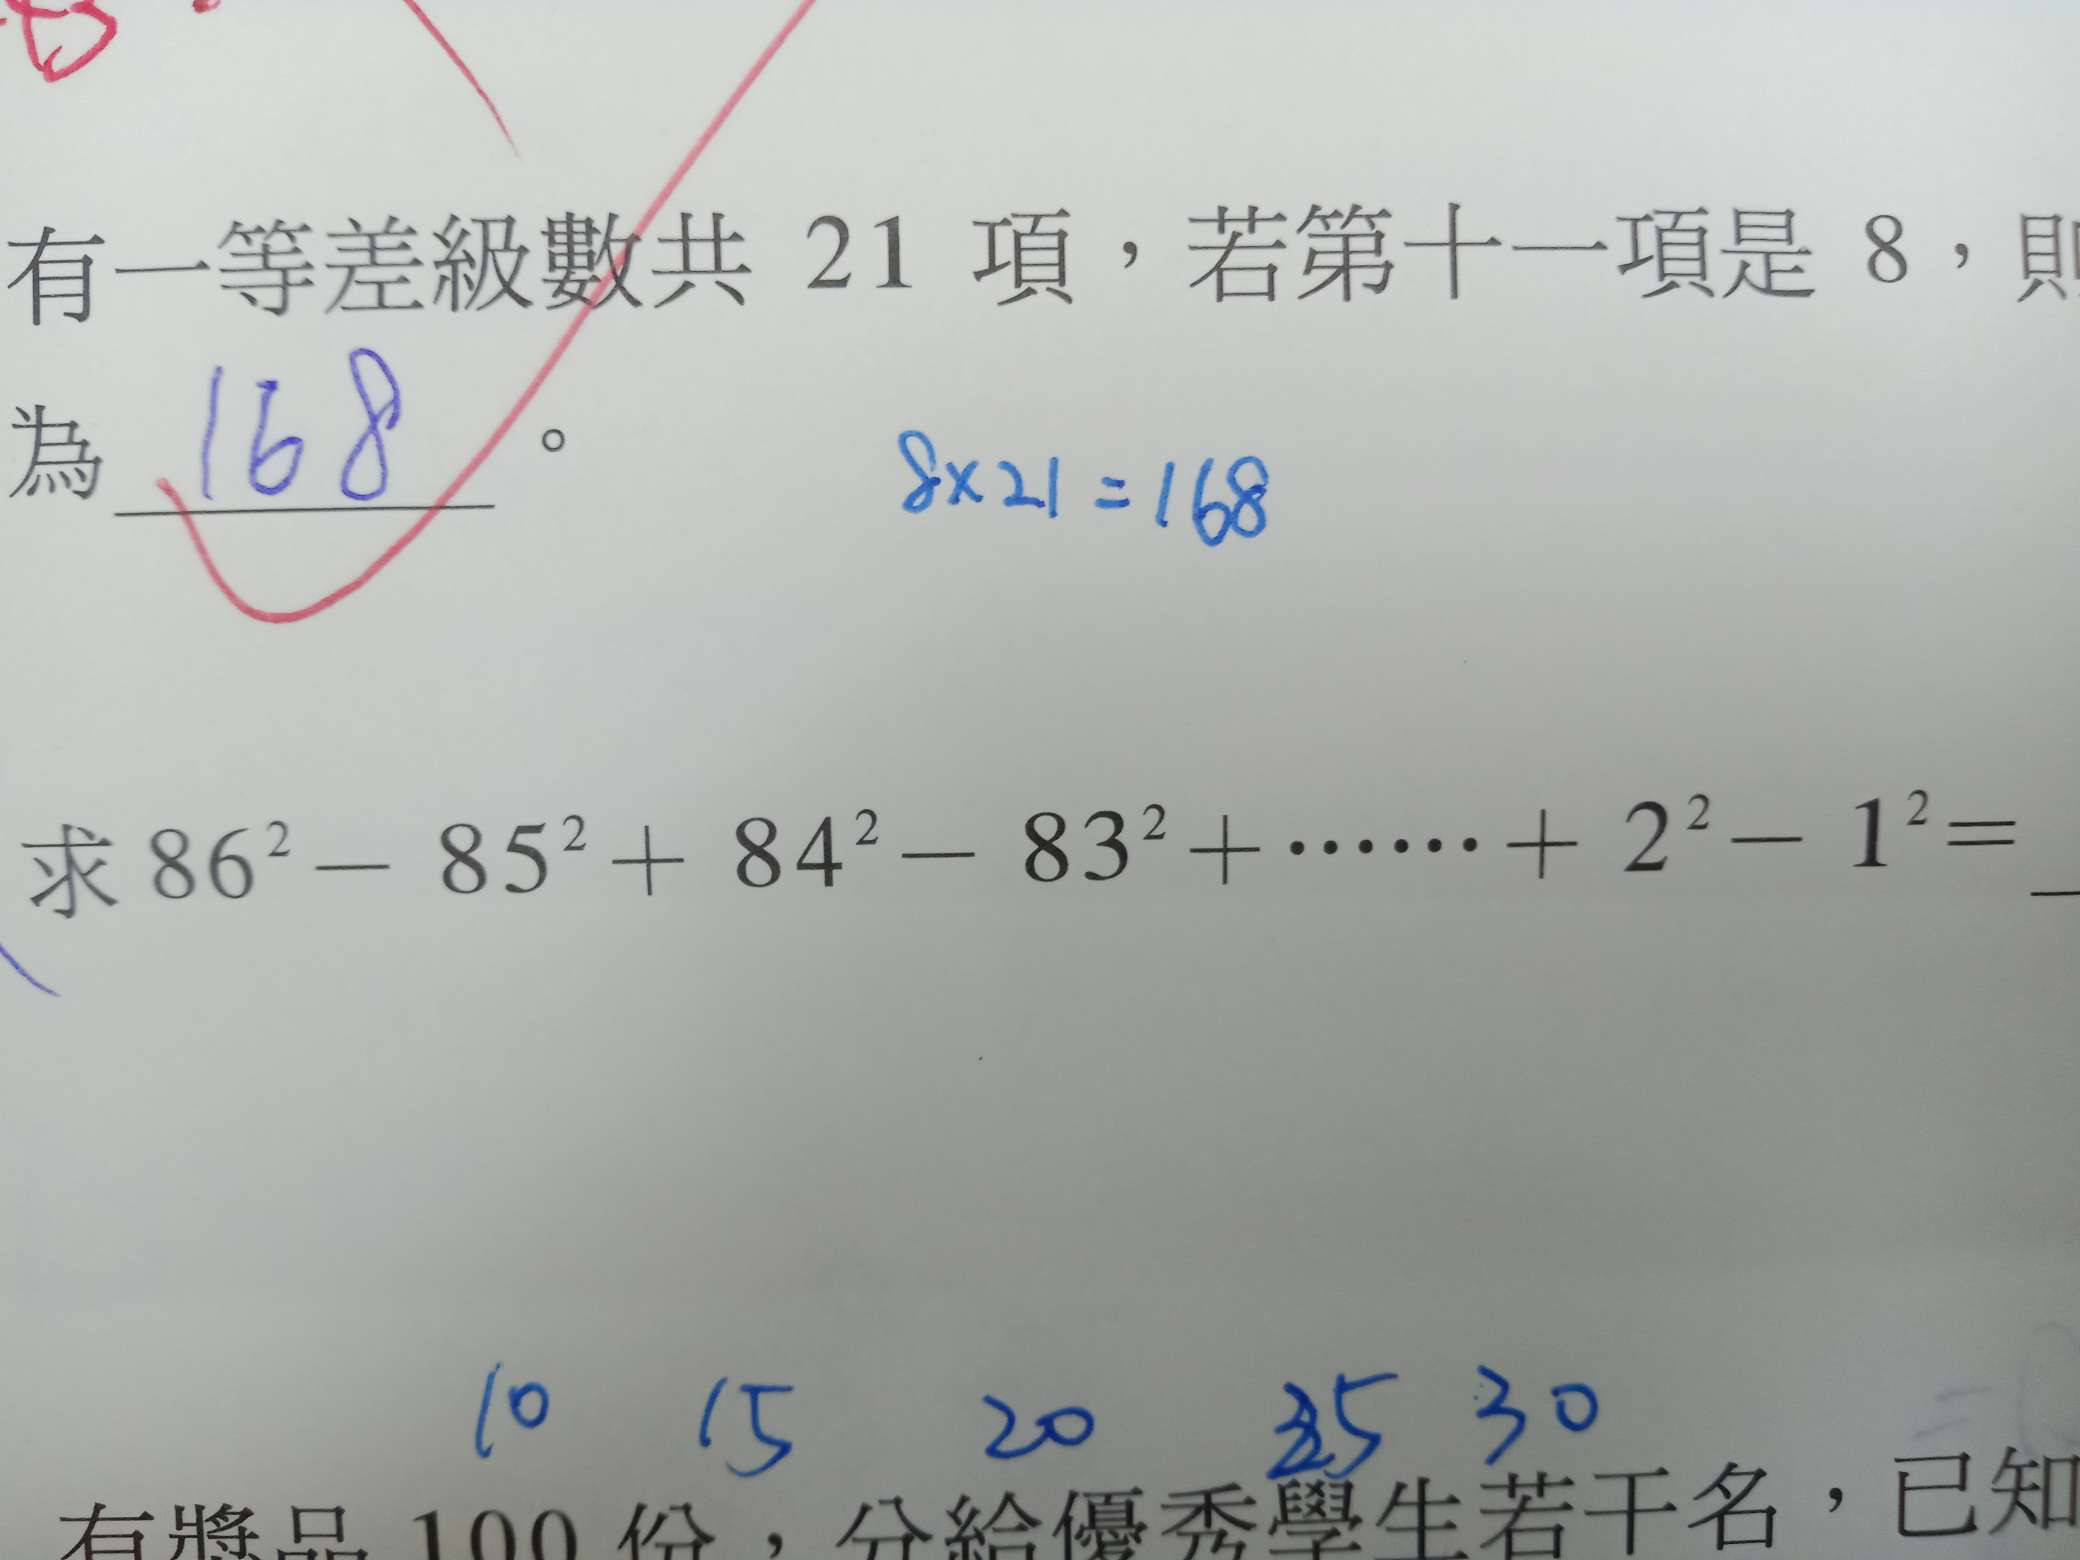 有一等差級數共 21 項，若第十一項是 8，則
為 168 。
8×21=168
求 86² − 85² + 84² − 83² + ⋯⋯ + 2² − 1² = _
10 15 20 25 30
有獎品 100 份，分給優秀學生若干名，已知